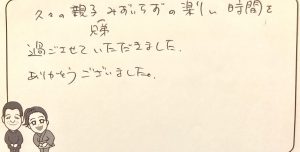 久々の親子みずいらずの楽しい時間を
兄弟
過ごさせていただきました。
ありがとうございました。